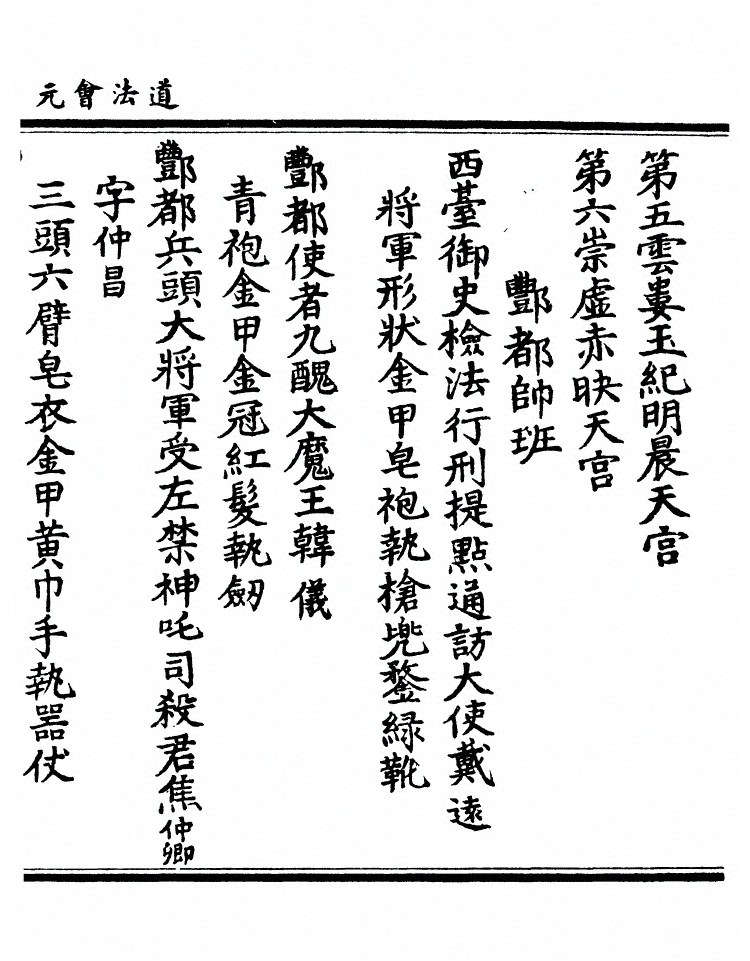 道法會元
第五雲婁玉紀明晨天宫
第六崇虛赤映天宫
酆都帥班
西臺御史檢法行刑提點通訪大使戴遠
將軍形狀金甲皂袍執槍兠鍪緑靴
酆都使者九醜大魔王韓儀
青袍金甲金冠紅髮執劒
酆都兵頭大將軍受左禁神吒司殺君焦仲卿
字仲昌
三頭六臂皂衣金甲黄巾手執器仗